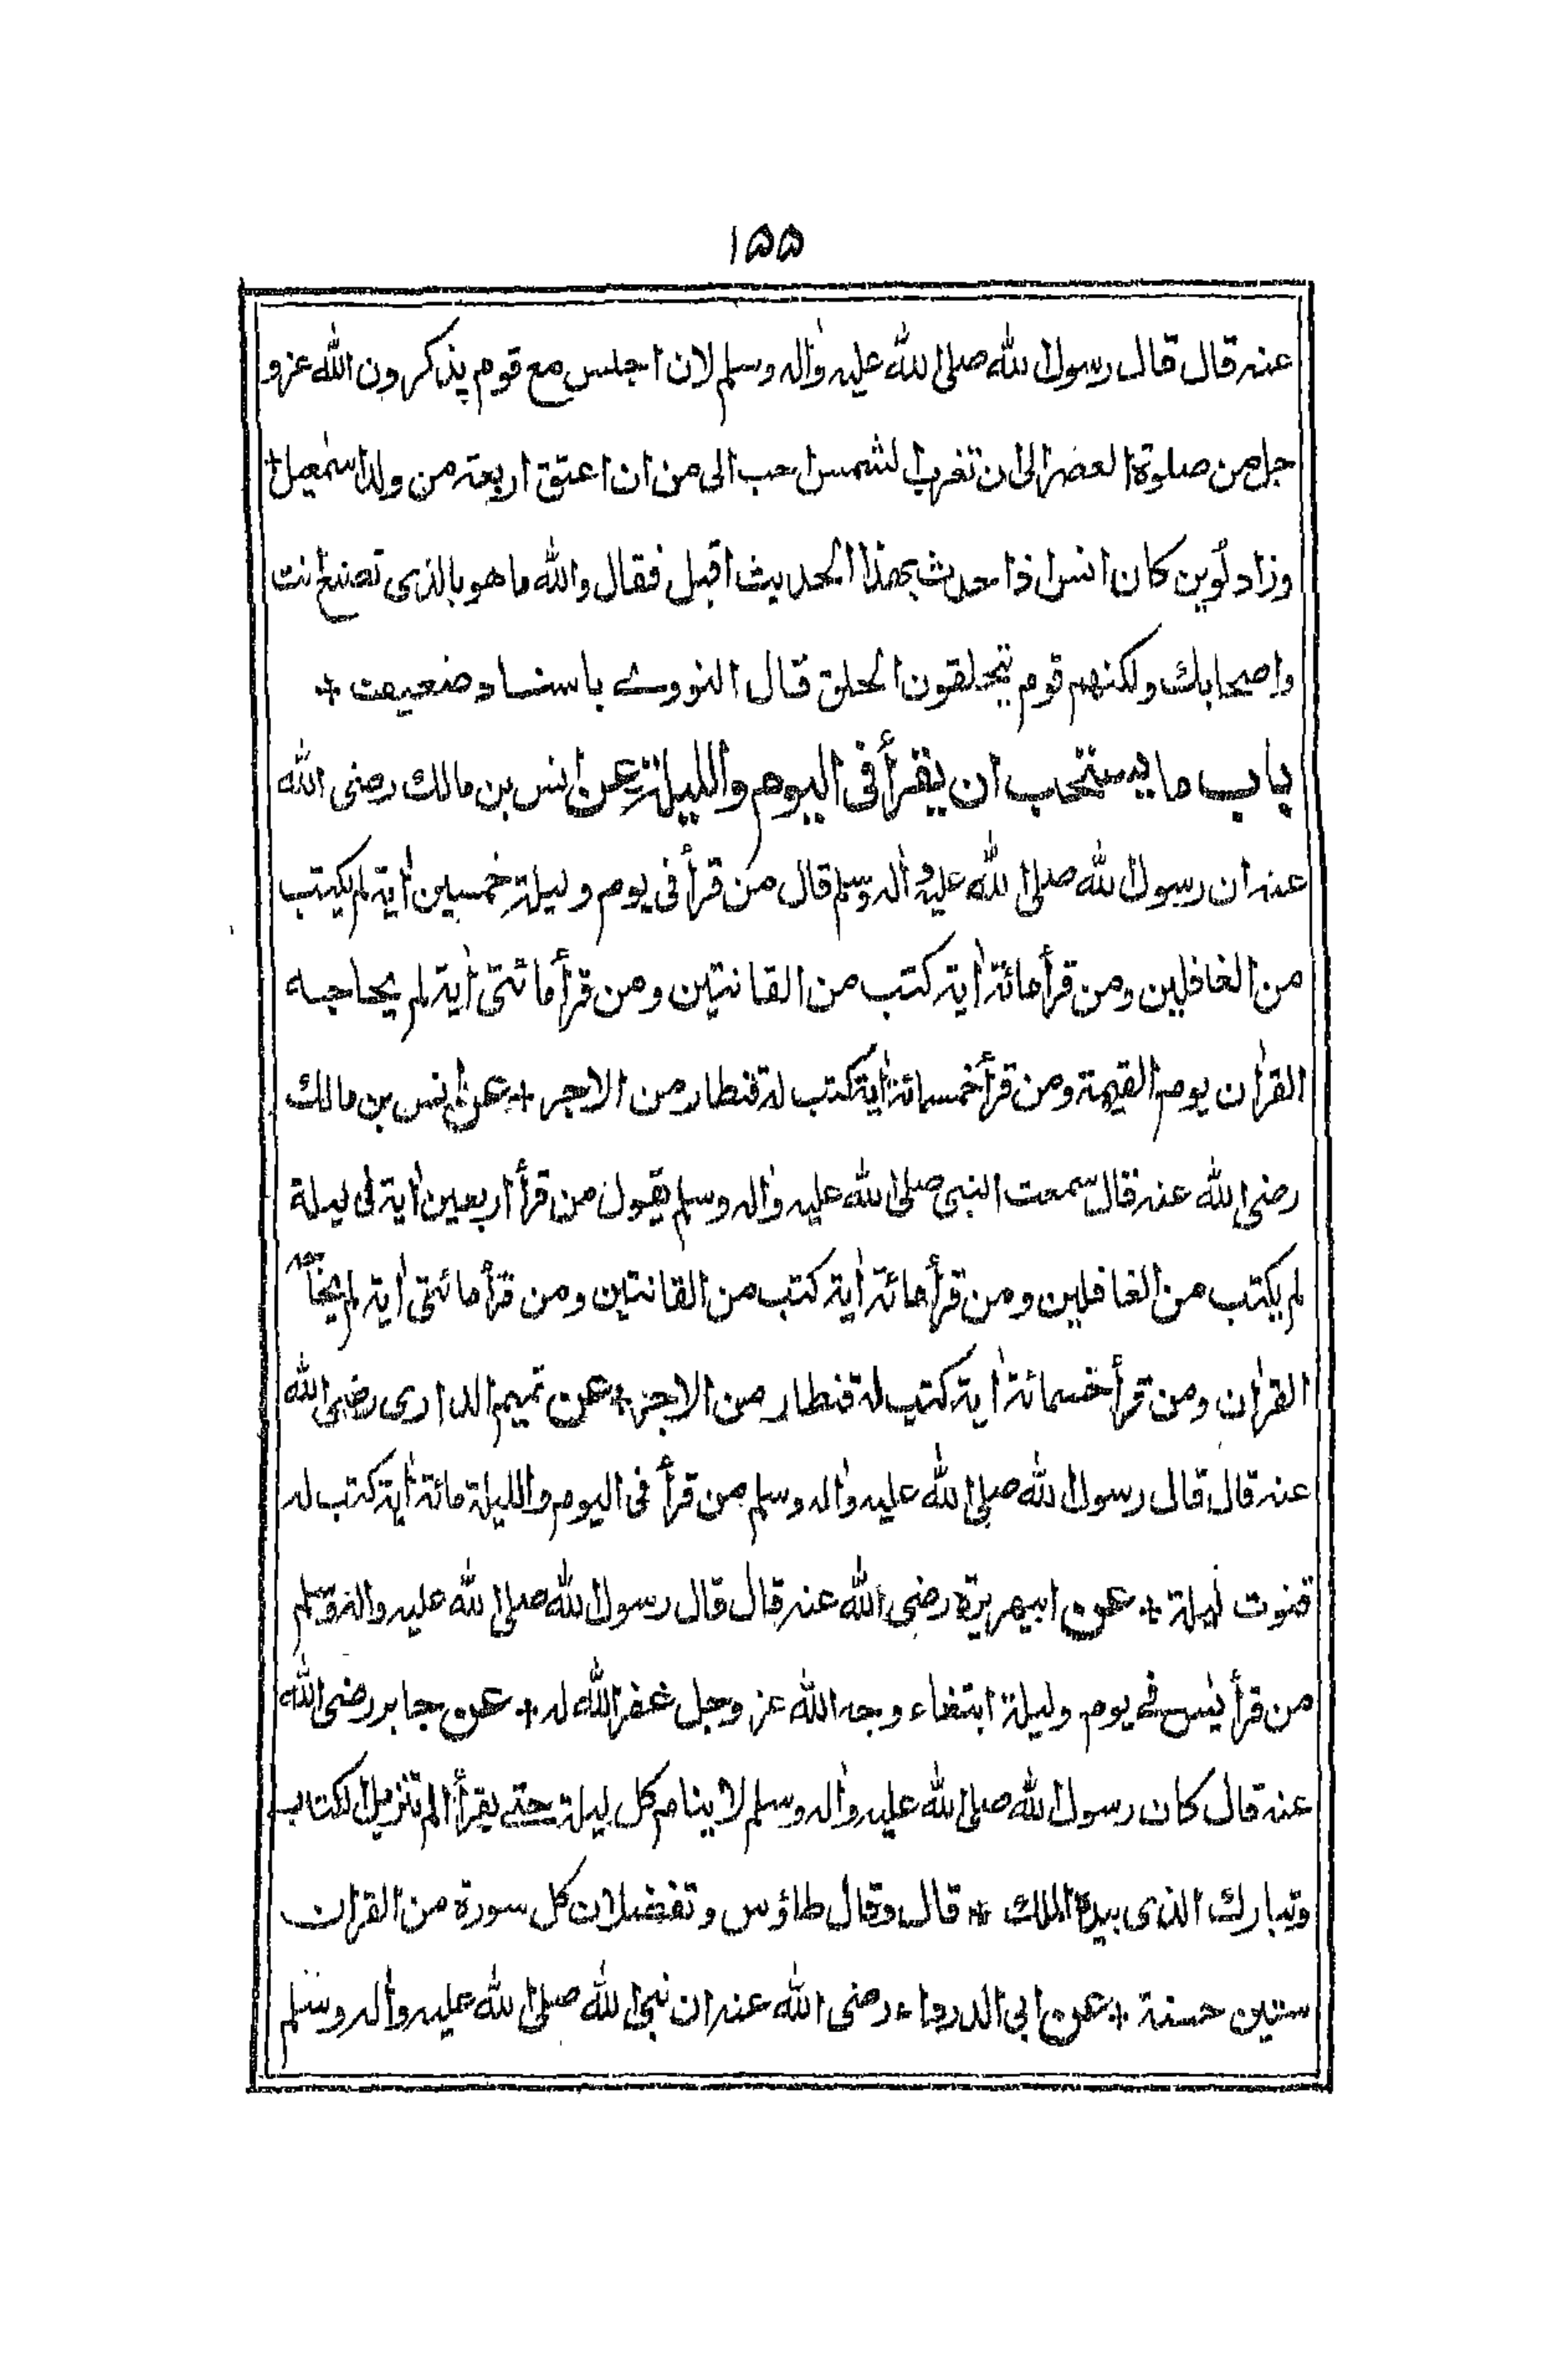 ۱۵۵
عنه قال قال رسول الله صلى الله عليه واٰله وسلم لان اجلس مع قوم يذكرون الله عز و
جل من صلوة العصر الى ان تغرب الشمس احب الى من ان اعتق اربعة من ولد اسمٰعيل +
وزاد لُوين كان انس اذا حدث بهذا الحديث اقبل فقال والله ما هو بالذى تصنع انت
واصحابك ولكنهم قوم يتحلقون الحلق قال النووے باسناد ضعيف +
باب ما يستحب ان يقرأ فى اليوم والليلة عن انس بن مالك رضى الله
عنه ان رسول الله صلى الله عليه واٰله وسلم قال من قرأ فى يوم وليلة خمسين اٰية لم يكتب
من الغافلين ومن قرأ مائة اٰية كتب من القانتين ومن قرأ مائتى اٰية لم يحاجه
القراٰن يوم القيمة ومن قرأ خمسمائة اٰية كتب له قنطار من الاجر + عن انس بن مالك
رضى الله عنه قال سمعت النبى صلى الله عليه واٰله وسلم يقول من قرأ اربعين اٰية فى ليلة
لم يكتب من الغافلين ومن قرأ مائة اٰية كتب من القانتين ومن قرأ مائتى اٰية لم يحاجه
القراٰن ومن قرأ خمسمائة اٰية كتب له قنطار من الاجر + عن تميم الدارى رضى الله
عنه قال قال رسول الله صلى الله عليه واٰله وسلم من قرأ فى اليوم والليلة مائة اٰية كتب له
قنوت ليلة + عن ابيهريرة رضى الله عنه قال قال رسول الله صلى الله عليه واٰله وسلم
من قرأ يٰس فے يوم وليلة ابتغاء وجه الله عز وجل غفر الله له + عن جابر رضى الله
عنه قال كان رسول الله صلى الله عليه واٰله وسلم لا ينام كل ليلة حتے يقرأ الم تنزيل الكتاب
وتبارك الذى بيده الملك + قال وقال طاؤس وتفضلان كل سورة من القراٰن
ستين حسنة + عن ابى الدرداء رضى الله عنه ان نبى الله صلى الله عليه واٰله وسلم